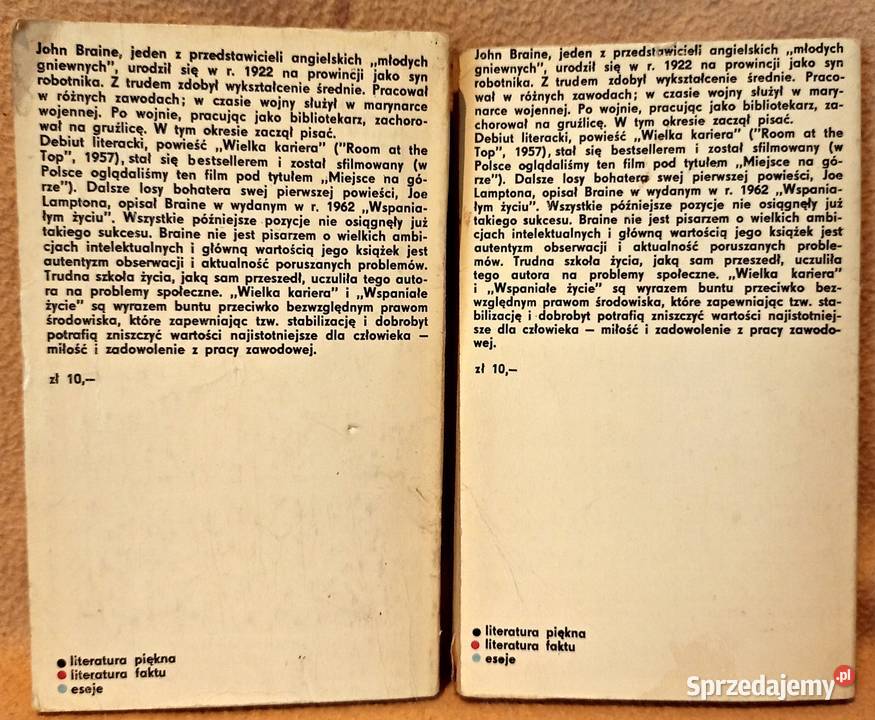 John Braine, jeden z przedstawicieli angielskich „młodych
gniewnych", urodził się w r. 1922 na prowincji jako syn
robotnika. Z trudem zdobył wykształcenie średnie. Pracował
w różnych zawodach; w czasie wojny służył w marynarce
wojennej. Po wojnie, pracując jako bibliotekarz, zachoro-
wał na gruźlicę. W tym okresie zaczął pisać.
Debiut literacki, powieść „Wielka kariera" ("Room at the
Top", 1957), stał się bestsellerem i został sfilmowany (w
Polsce oglądaliśmy ten film pod tytułem „Miejsce na gó-
rze"). Dalsze losy bohatera swej pierwszej powieści, Joe
Lamptona, opisał Braine w wydanym w r. 1962 „Wspania-
łym życiu". Wszystkie późniejsze pozycje nie osiągnęły już
takiego sukcesu. Braine nie jest pisarzem o wielkich ambi-
cjach intelektualnych i główną wartością jego książek jest
autentyzm obserwacji i aktualność poruszanych problemów.
Trudna szkoła życia, jaką sam przeszedł, uczuliła tego auto-
ra na problemy społeczne. „Wielka kariera" i „Wspaniałe
życie" są wyrazem buntu przeciwko bezwzględnym prawom
środowiska, które zapewniając tzw. stabilizację i dobrobyt
potrafią zniszczyć wartości najistotniejsze dla człowieka –
miłość i zadowolenie z pracy zawodowej.
zł 10,–
literatura piękna
literatura faktu
eseje
John Braine, jeden z przedstawicieli angielskich „młodych
gniewnych", urodził się w r. 1922 na prowincji jako syn
robotnika. Z trudem zdobył wykształcenie średnie. Praco-
wał w różnych zawodach; w czasie wojny służył w mary-
narce wojennej. Po wojnie, pracując jako bibliotekarz, za-
chorował na gruźlicę. W tym okresie zaczął pisać.
Debiut literacki, powieść „Wielka kariera" ("Room at the
Top", 1957), stał się bestsellerem i został sfilmowany (w
Polsce oglądaliśmy ten film pod tytułem „Miejsce na gó-
rze"). Dalsze losy bohatera swej pierwszej powieści, Joe
Lamptona, opisał Braine w wydanym w r. 1962 „Wspania-
łym życiu". Wszystkie późniejsze pozycje nie osiągnęły już
takiego sukcesu. Braine nie jest pisarzem o wielkich ambi-
cjach intelektualnych i główną wartością jego książek jest
autentyzm obserwacji i aktualność poruszanych proble-
mów. Trudna szkoła życia, jaką sam przeszedł, uczuliła
tego autora na problemy społeczne. „Wielka kariera"
i „Wspaniałe życie" są wyrazem buntu przeciwko bez-
względnym prawom środowiska, które zapewniając tzw. sta-
bilizację i dobrobyt potrafią zniszczyć wartości najistotniej-
sze dla człowieka – miłość i zadowolenie z pracy zawodo-
wej.
zł 10,–
literatura piękna
literatura faktu
eseje
Sprzedajemy.pl